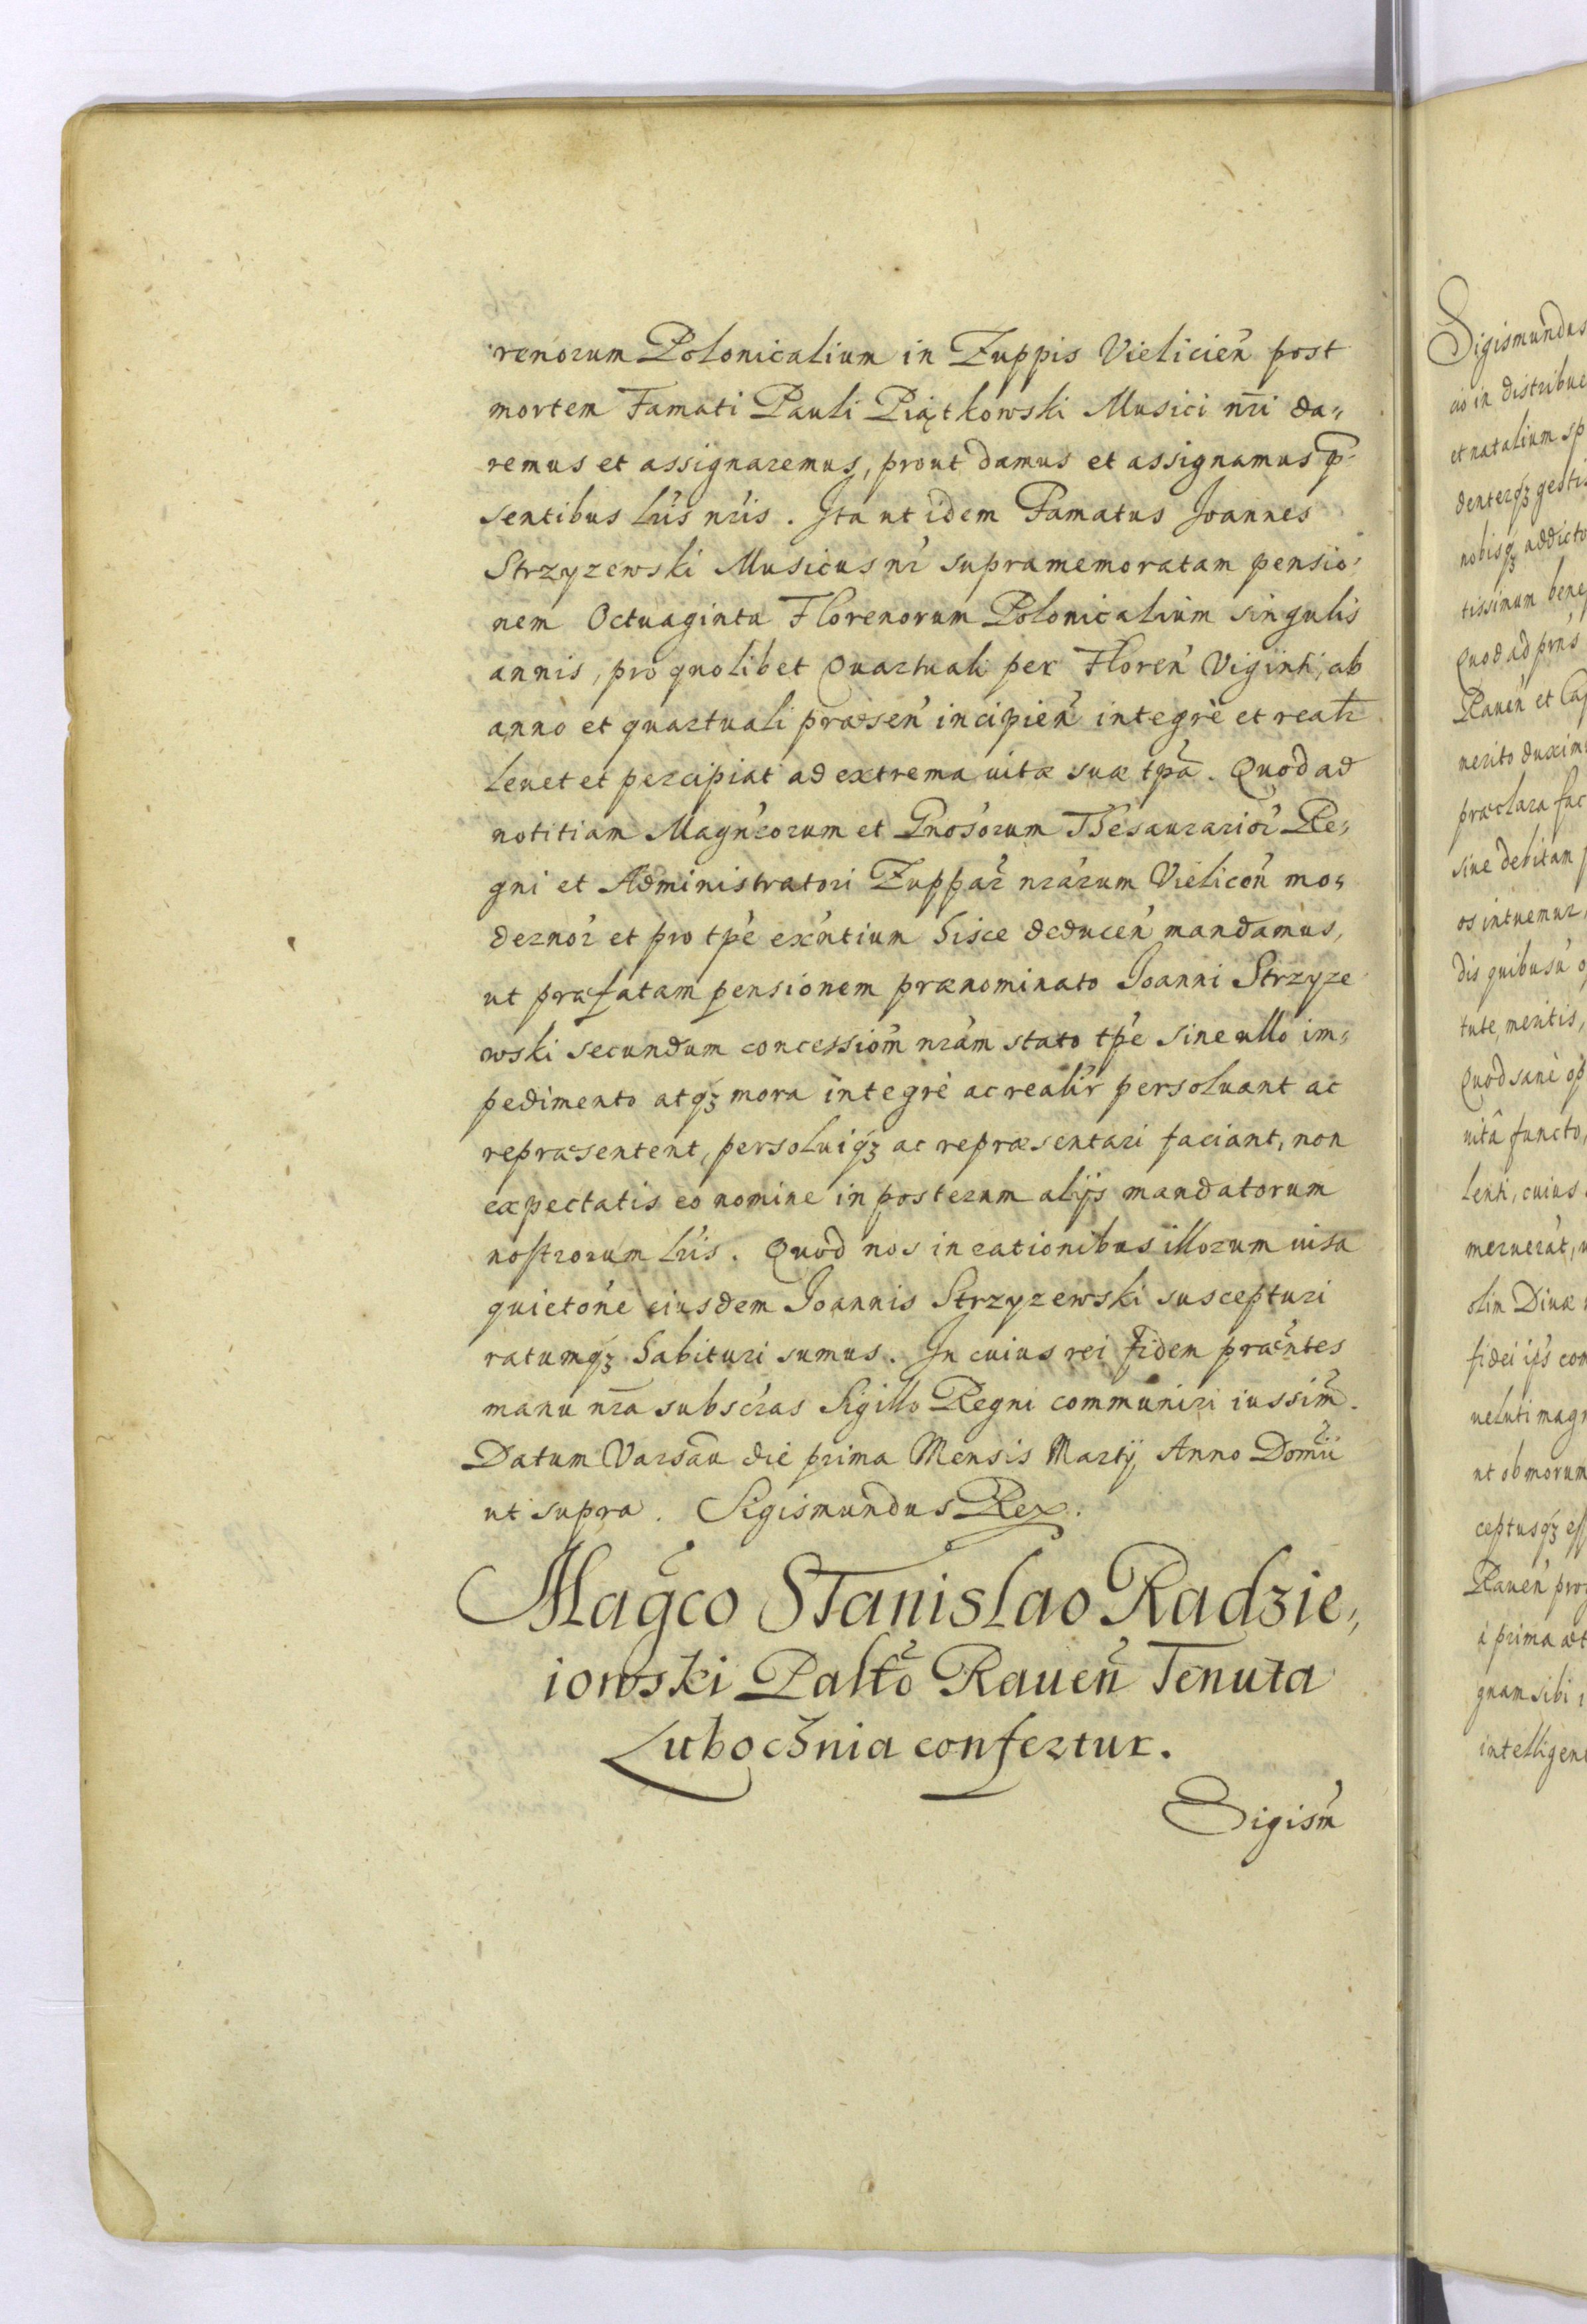 renorum Polonicalium in Zuppis Vielicień post
mortem Famati Pauli Piątkowski Musici nr̃i da„
remus et assignaremus, prout damus et assignamus p̃„
sentibus Lr̃is nr̃is. Ita ut idem Famatus Joannes
Strzyzewski Musicus nr̃ supramemoratam pensio„
nem Octuaginta Florenorum Polonicalium singulis
annis, pro quolibet Quartuali per Floreñ Viginti, ab
anno et quartuali præseñ incipieñ integrè et realr̃
leuet et percipiat ad extrema uitæ suæ tp̃a. Quod ad
notitiam Magñcorum et Gñosorum Thesaurarior̃ Re„
gni et Administratori Zuppar̃ nr̃arum Vielicoñ mo„
dernor̃ et pro tp̃e exñtium hisce deduceñ mandamus,
ut præfatam pensionem prænominato Joanni Strzyze
wski secundum concessiom̃ nr̃am stato tp̃e sine ullo im„
pedimento atqꝫ mora integrè ac realir̃ persoluant ac
repræsentent, persoluiqꝫ ac repræsentari faciant, non
expectatis eo nomine in posterum alijs mandatorum
nostrorum Lr̃is. Quod nos in rationibus illorum uisa
quietoñe eiusdem Joannis Strzyzewski suscepturi
ratumqꝫ habituri sumus. In cuius rei fidem præñtes
manu nr̃a subscr̃as Sigillo Regni communiri iussim̃.
Datum Varsaũ die prima Mensis Martij Anno Domĩi
ut supra. Sigismundus Rex.
Mag̃co Stanislao Radzie„
iowski Palt̃o Raueñ Tenuta
Lubochnia confertur.
Sigism̃
Sigismundus
cio in distribue
et natalium sp
denterqꝫ gestis
nobisqꝫ addicto
tissimum bene
Quod ad pr̃ns
Raueñ et Cap
merito duxim
præclara fac
siue debitam p
os intuemur,
dis quibusũ o
tute, meritis,
Quod sanè op
uitâ functo,
lenti, cuius
meruerat, u
olim Diuæ
fidei ip̃s con
ueluti magn
ut ob morum
ceptusqꝫ ess
Raueñ pro
à prima æt
quam sibi i
intelligen